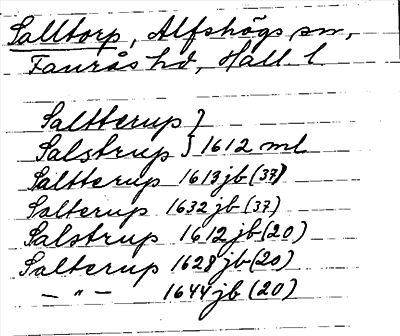 Salltorp, Alfshögs sn,
Faurås hd, Hall l
Saltterup }
Salstrup } 1612 ml
Saltterup 1613 jb (37)
Salterup 1632 jb (37)
Salstrup 1612 jb (20)
Salterup 1628 jb (20)
— " — 1644 jb (20)